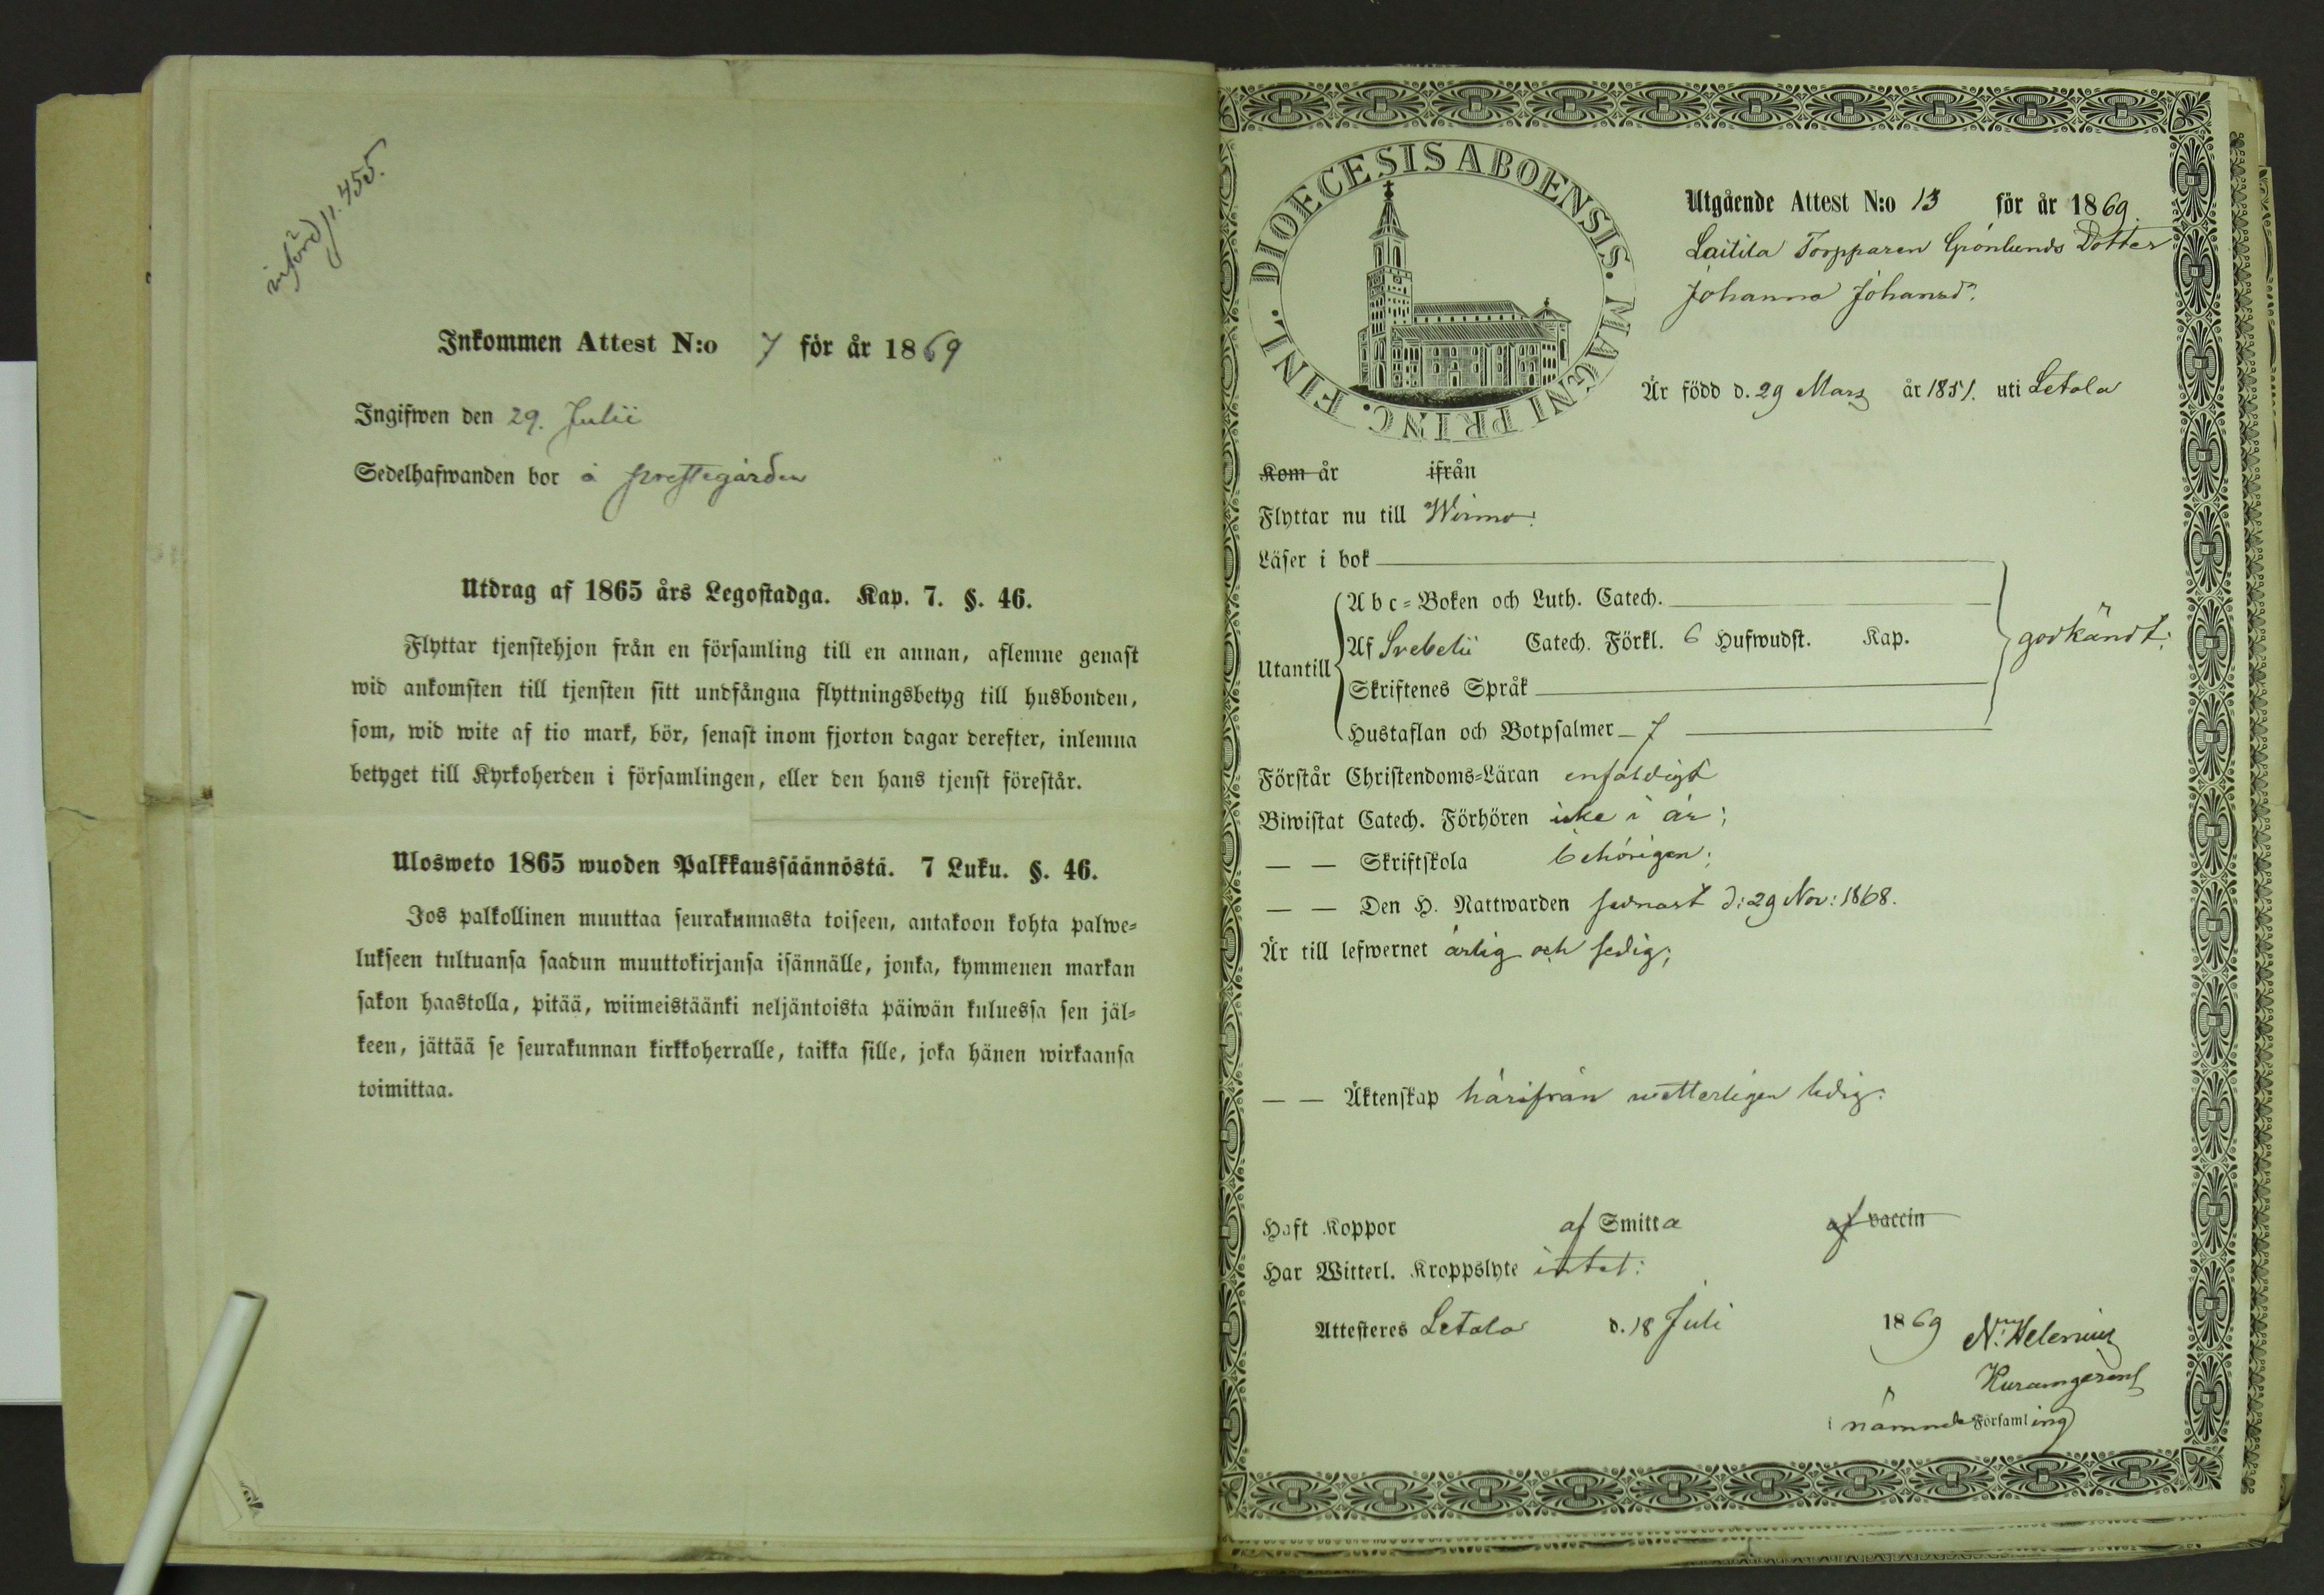 införd p. 455.
Inkommen Attest N:o 7 för år 1869
Ingifwen den 29. Julii
Sedelhafwanden bor å prestegården
Utdrag af 1865 års Legostadga. Kap. 7. §. 46.
Flyttar tjenstehjon från en församling till en annan, aflemne genast
wid ankomsten till tjensten sitt undfångna flyttningsbetyg till husbonden,
som, wid wite af tio mark, bör, senast inom fjorton dagar derefter, inlemna
betyget till Kyrkoherden i församlingen, eller den hans tjenst förestår.
Ulosweto 1865 wuoden Palkkaussäännöstä. 7 Luku. §. 46.
Jos palkollinen muuttaa seurakunnasta toiseen, antakoon kohta palwe=
lukseen tultuansa saadun muuttokirjansa isännälle, jonka, kymmenen markan
sakon haastolla, pitää, wiimeistäänki neljäntoista päiwän kuluessa sen jäl=
keen, jättää se seurakunnan kirkkoherralle, taikka sille, joka hänen wirkaansa
toimittaa.
DIOECESIS ABOENSIS. MAGNI PRINC. FINL.
Utgående Attest N:o 13 för år 1869.
Laitila Torpparen Grönlunds Dotter
Johanna Johansd:r
Är född d. 29 Mars år 1851. uti Letala
Kom år ifrån
Flyttar nu till Wirmo:
Läser i bok
Abc=Boken och Luth. Catech.
Utantill Af Svebelii Catech. Förkl. 6 Hufwudst. Kap. godkändt;
Skriftenes Språk
Hustaflan och Botpsalmer 7
Förstår Christendoms=Läran enfaldigt
Biwistat Catech. Förhören icke i år;
— — Skriftskola behörigen;
— — Den H. Nattwarden sednast d: 29 Nov: 1868.
Är till lefwernet ärlig och sedig;
— — Äktenskap härifrån wetterligen ledig:
Haft Koppor af Smitta af vaccin
Har Witterl. Kroppslyte intet:
Attesteres Letala d. 18 Juli 1869 N. Helenius
i nämnde Församling